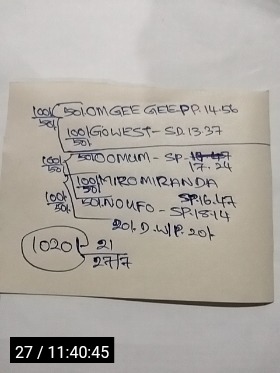 100/ 50/ OMGEE GEE PP. 14-56
50/ 100/ GOWEST - SP. 13.37
50/
100/ 50/ OOMUM - SP -
50/ 17.24
100/ MIRO MIRANDA
50/ SP. 16.47
100/ 50/. NO UFO - SP. 18.14
50/ 20/. D. W/P. 20/
1020/ 21
27/7
27 / 11:40:45